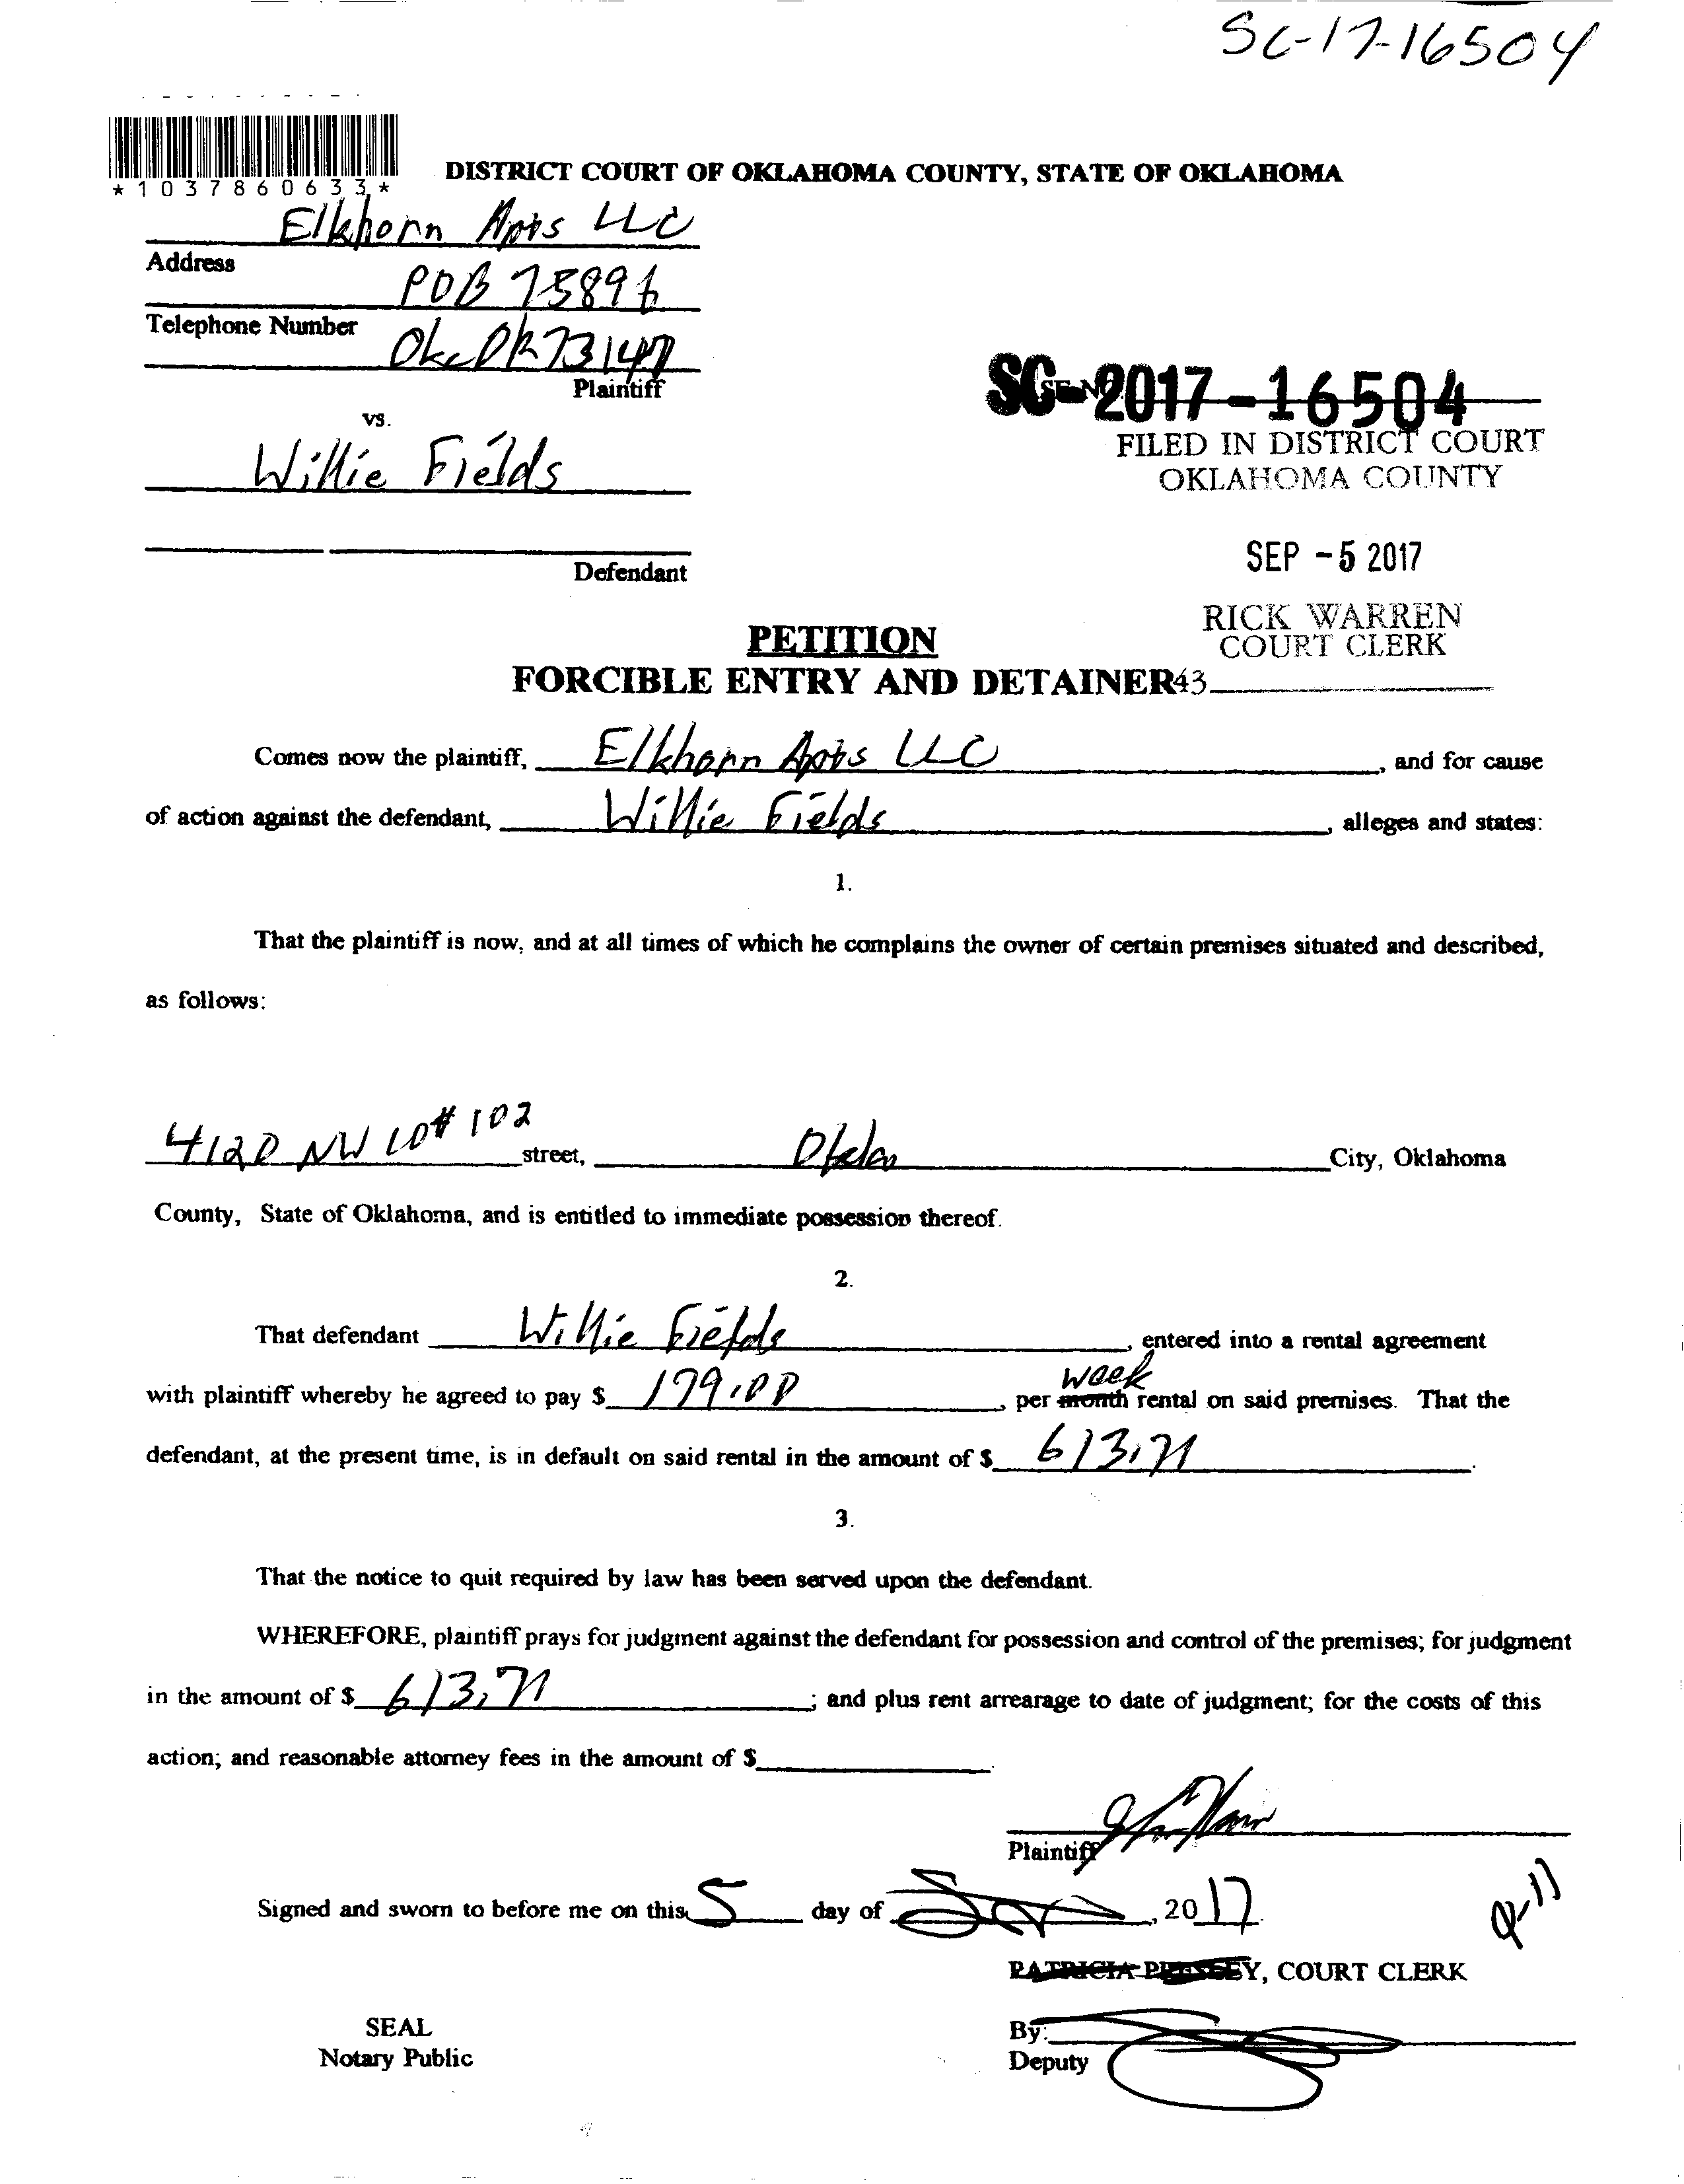 SC-17-16504
*1037860633*
DISTRICT COURT OF OKLAHOMA COUNTY, STATE OF OKLAHOMA
Elkhorn Apts LLC
Address
POB 75896
Telephone Number
Okc OK 73147
Plaintiff
SC-2017-16504
vs.
FILED IN DISTRICT COURT
Willie Fields
OKLAHOMA COUNTY
SEP -5 2017
Defendant
RICK WARREN
PETITION
COURT CLERK
FORCIBLE ENTRY AND DETAINER 43
Comes now the plaintiff, Elkhorn Apts LLC, and for cause
of action against the defendant, Willie Fields, alleges and states:
1.
That the plaintiff is now, and at all times of which he complains the owner of certain premises situated and described,
as follows:
4120 NW 10 # 102 street, City, Oklahoma
County, State of Oklahoma, and is entitled to immediate possession thereof.
2.
That defendant Willie Fields, entered into a rental agreement
week
with plaintiff whereby he agreed to pay $ 179.00, per month rental on said premises. That the
defendant, at the present time, is in default on said rental in the amount of $ 613.71.
3.
That the notice to quit required by law has been served upon the defendant.
WHEREFORE, plaintiff prays for judgment against the defendant for possession and control of the premises; for judgment
in the amount of $ 613.71; and plus rent arrearage to date of judgment; for the costs of this
action; and reasonable attorney fees in the amount of $
Plaintiff
Signed and sworn to before me on this 5 day of , 20 17.
9-11
PATRICIA PRESLEY, COURT CLERK
SEAL
By:
Notary Public
Deputy